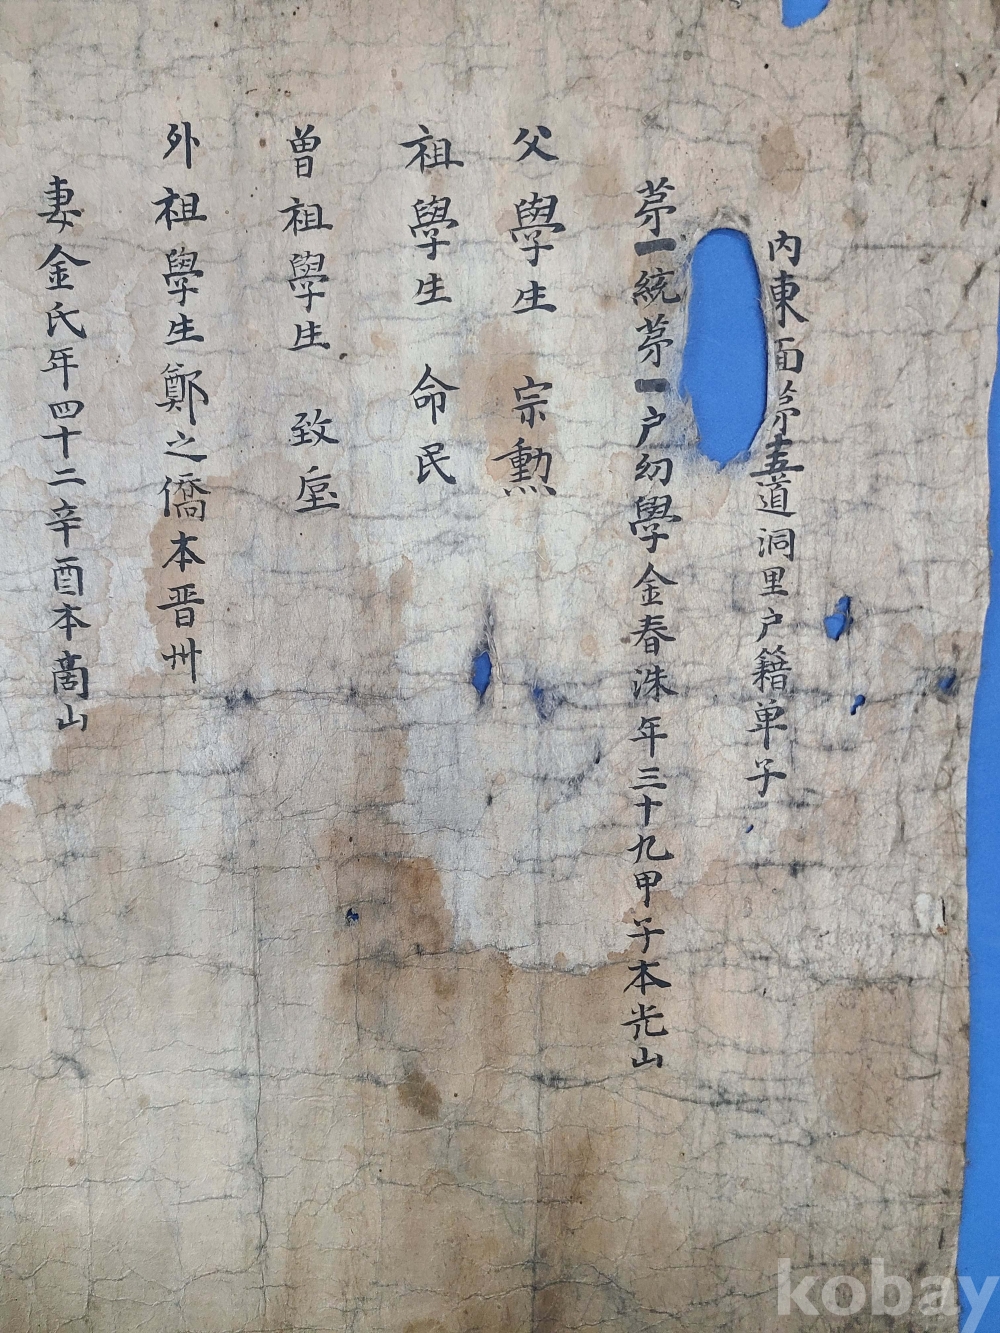 內東面第五道洞里户籍单子
第一統第一户幼學金春洙年三十九甲子本光山
父學生 宗勲
祖學生 命民
曽祖學生 致垕
外祖學生鄭之僑本晋州
妻金氏年四十二辛酉本啇山
kobay